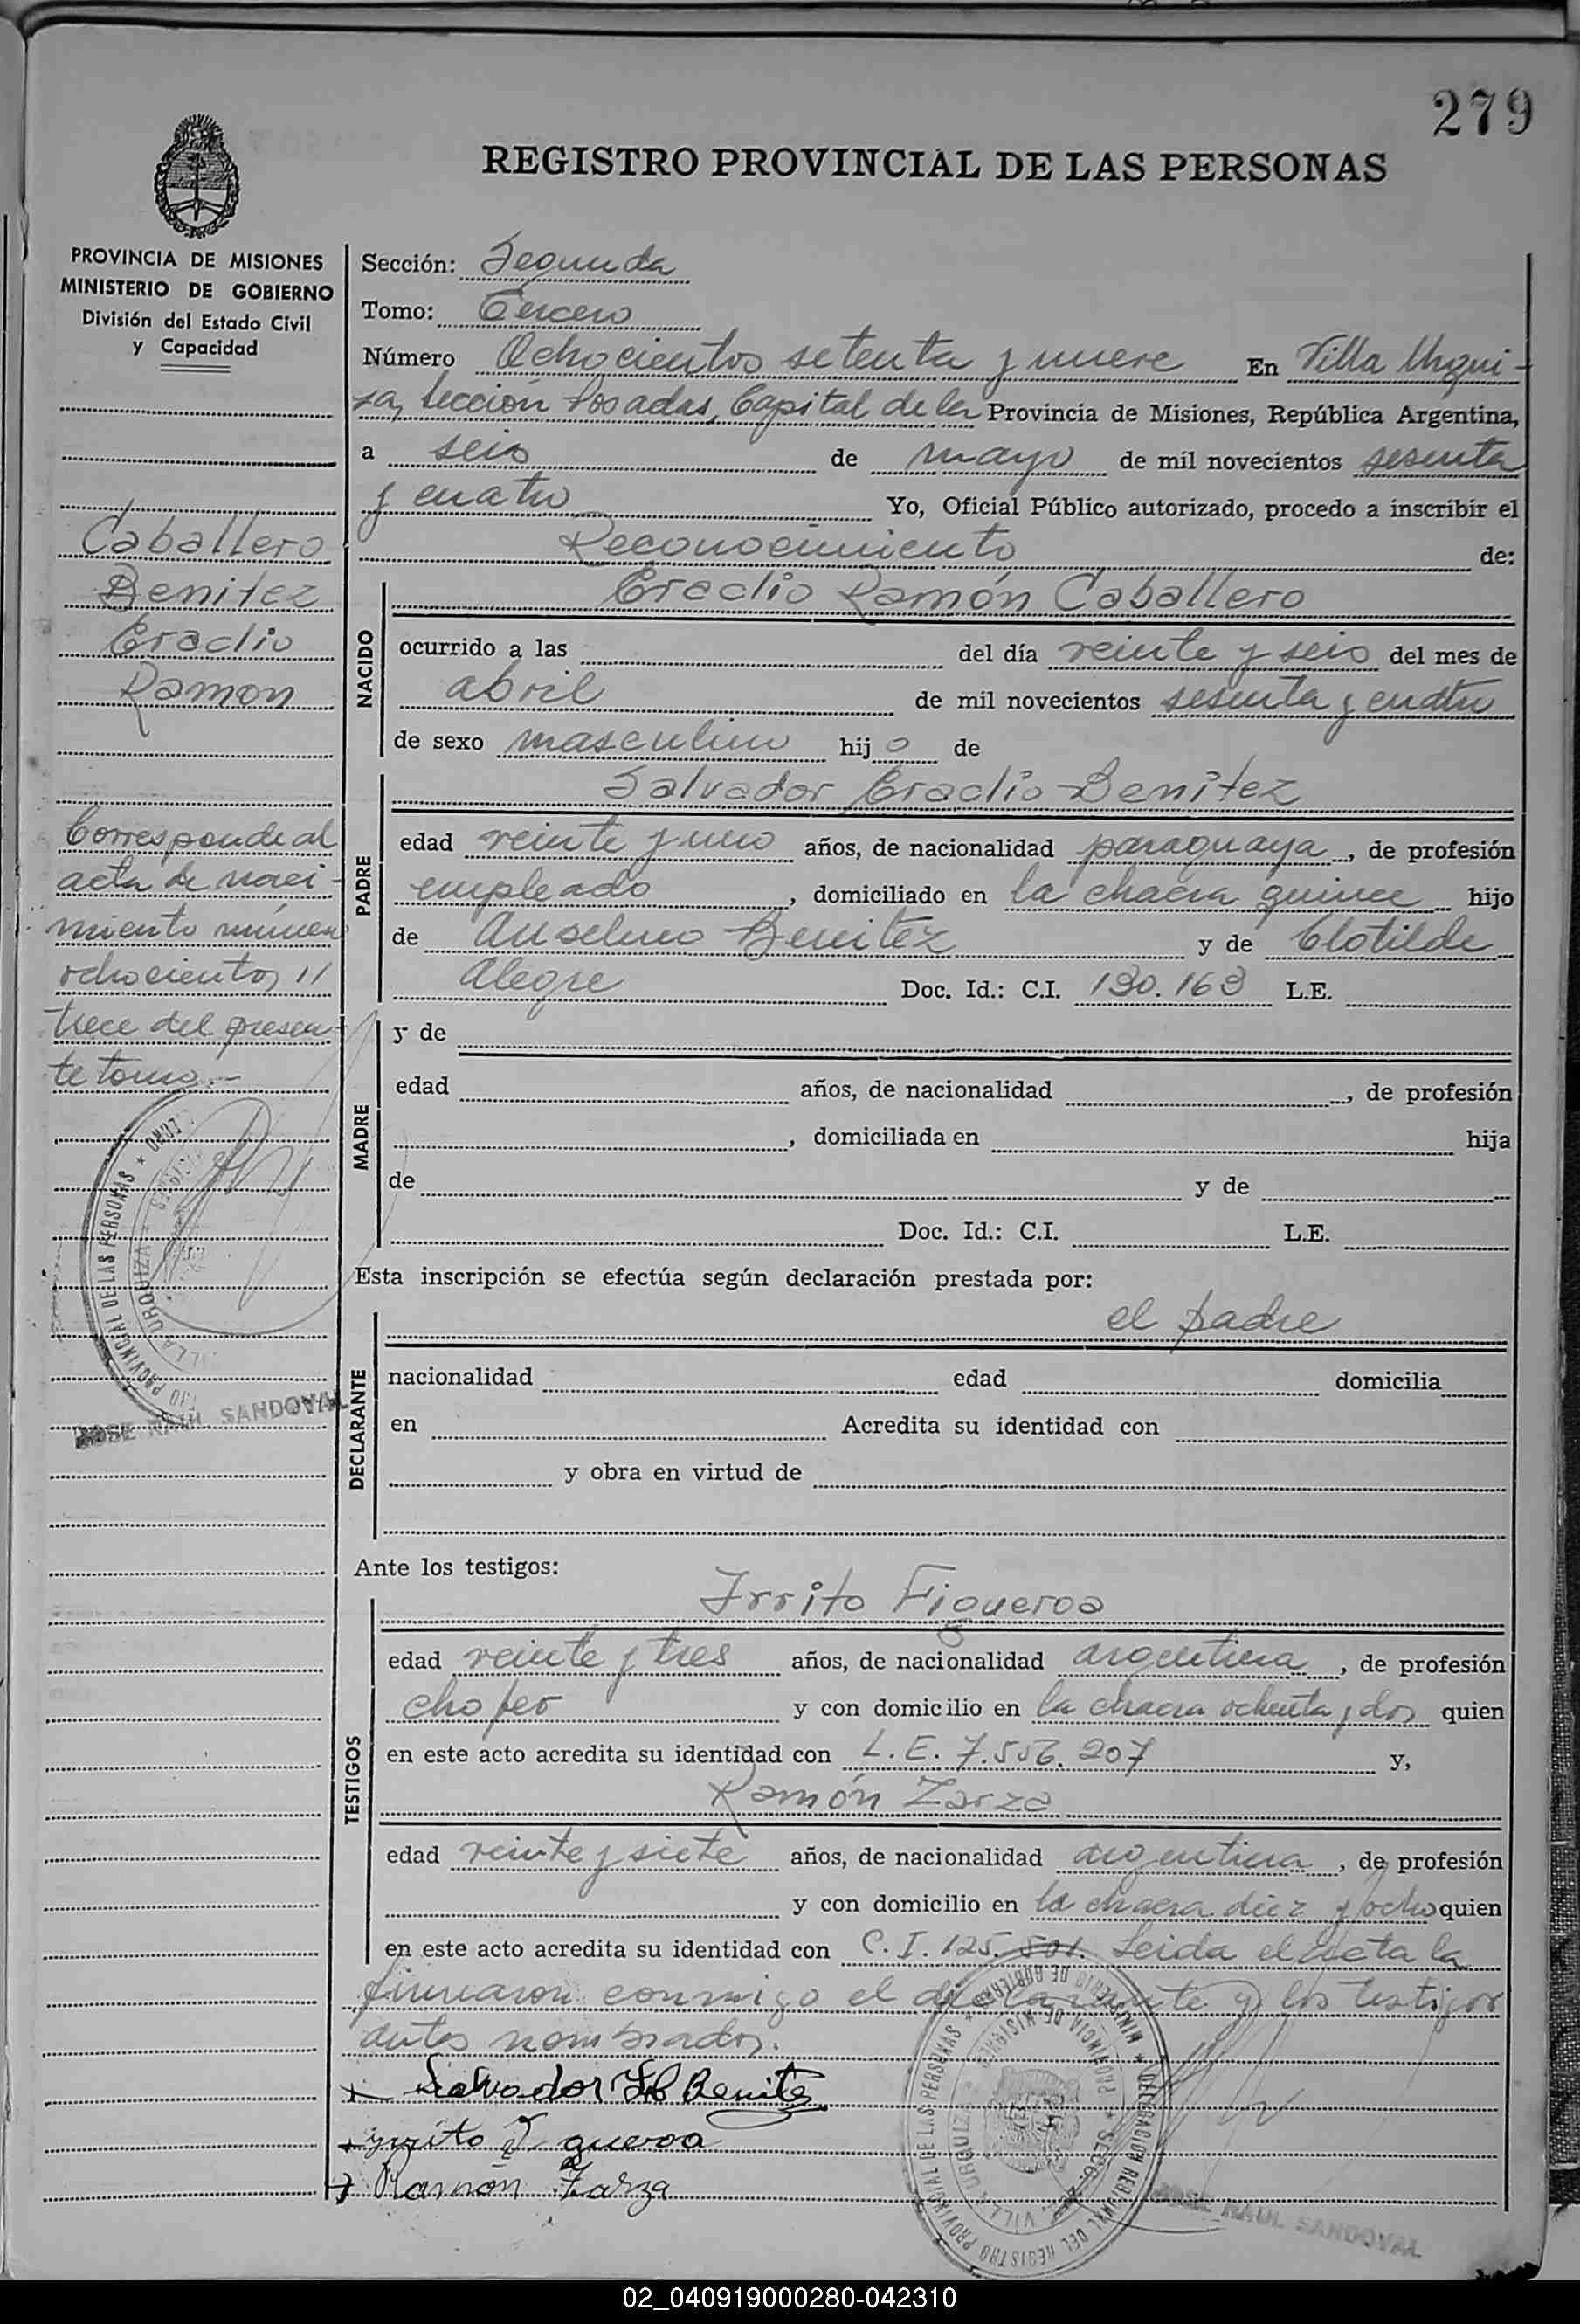 279
REGISTRO PROVINCIAL DE LAS PERSONAS
PROVINCIA DE MISIONES
MINISTERIO DE GOBIERNO
División del Estado Civil
y Capacidad
Caballero
Benitez
Eraclio
Ramon
Corresponde al
acta de naci-
miento número
ochocientos //
trece del presen-
te tomo.-
JOSE RAUL SANDOVAL
Sección: Segunda
Tomo: Tercero
Número Ochocientos setenta y nueve En Villa Urqui-
za, Sección Posadas, Capital de la Provincia de Misiones, República Argentina,
a seis de mayo de mil novecientos sesenta
y cuatro Yo, Oficial Público autorizado, procedo a inscribir el
Reconocimiento de:
NACIDO
Eraclio Ramón Caballero
ocurrido a las del día veinte y seis del mes de
abril de mil novecientos sesenta y cuatro
de sexo masculino hijo de
PADRE
Salvador Eraclio Benitez
edad veinte y uno años, de nacionalidad paraguaya, de profesión
empleado, domiciliado en la chacra quince hijo
de Anselmo Benitez y de Clotilde
Alegre Doc. Id.: C.I. 130.163 L.E.
MADRE
y de
edad años, de nacionalidad , de profesión
, domiciliada en hija
de y de
Doc. Id.: C.I. L.E.
Esta inscripción se efectúa según declaración prestada por:
DECLARANTE
el padre
nacionalidad edad domicilia
en Acredita su identidad con
y obra en virtud de
Ante los testigos:
TESTIGOS
Irrito Figueroa
edad veinte y tres años, de nacionalidad argentina, de profesión
chofer y con domicilio en la chacra ochenta y dos quien
en este acto acredita su identidad con L.E. 7.556.207 y,
Ramón Zarza
edad veinte y siete años, de nacionalidad argentina, de profesión
y con domicilio en la chacra diez y ocho quien
en este acto acredita su identidad con C.I. 125.501. Leida el acta la
firmaron conmigo el declarante y los testigos
antes nombrados.
Salvador Benitez
Ramón Zarza
JOSE RAUL SANDOVAL
02_040919000280-042310